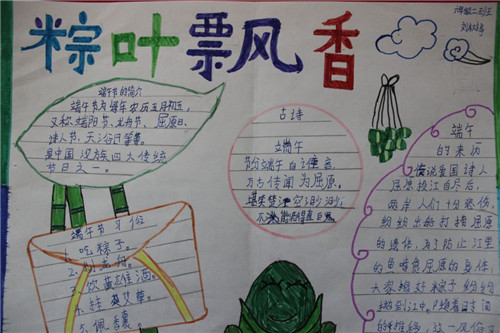 粽叶飘香
端午节的简介
端午节为每年农历五月初五,
又称端阳节、午日节、
诗人节、
是中国汉族四大传统
节日之一。
端午节习俗
1、吃粽子。
饮雄黄酒。
5、佩香囊
古诗
端午
节分端午自谁言,
万古传闻为屈原。
堪笑楚江空渺渺,
不能洗得直臣冤
端午
的来历
传说爱国诗人
屈原投江自尽后,
两岸人们十分悲伤,
纷纷出船打捞屈原
的遗体,为了防止江里
的鱼啃食屈原的身体,
大家把粽子纷纷
抛到江中。